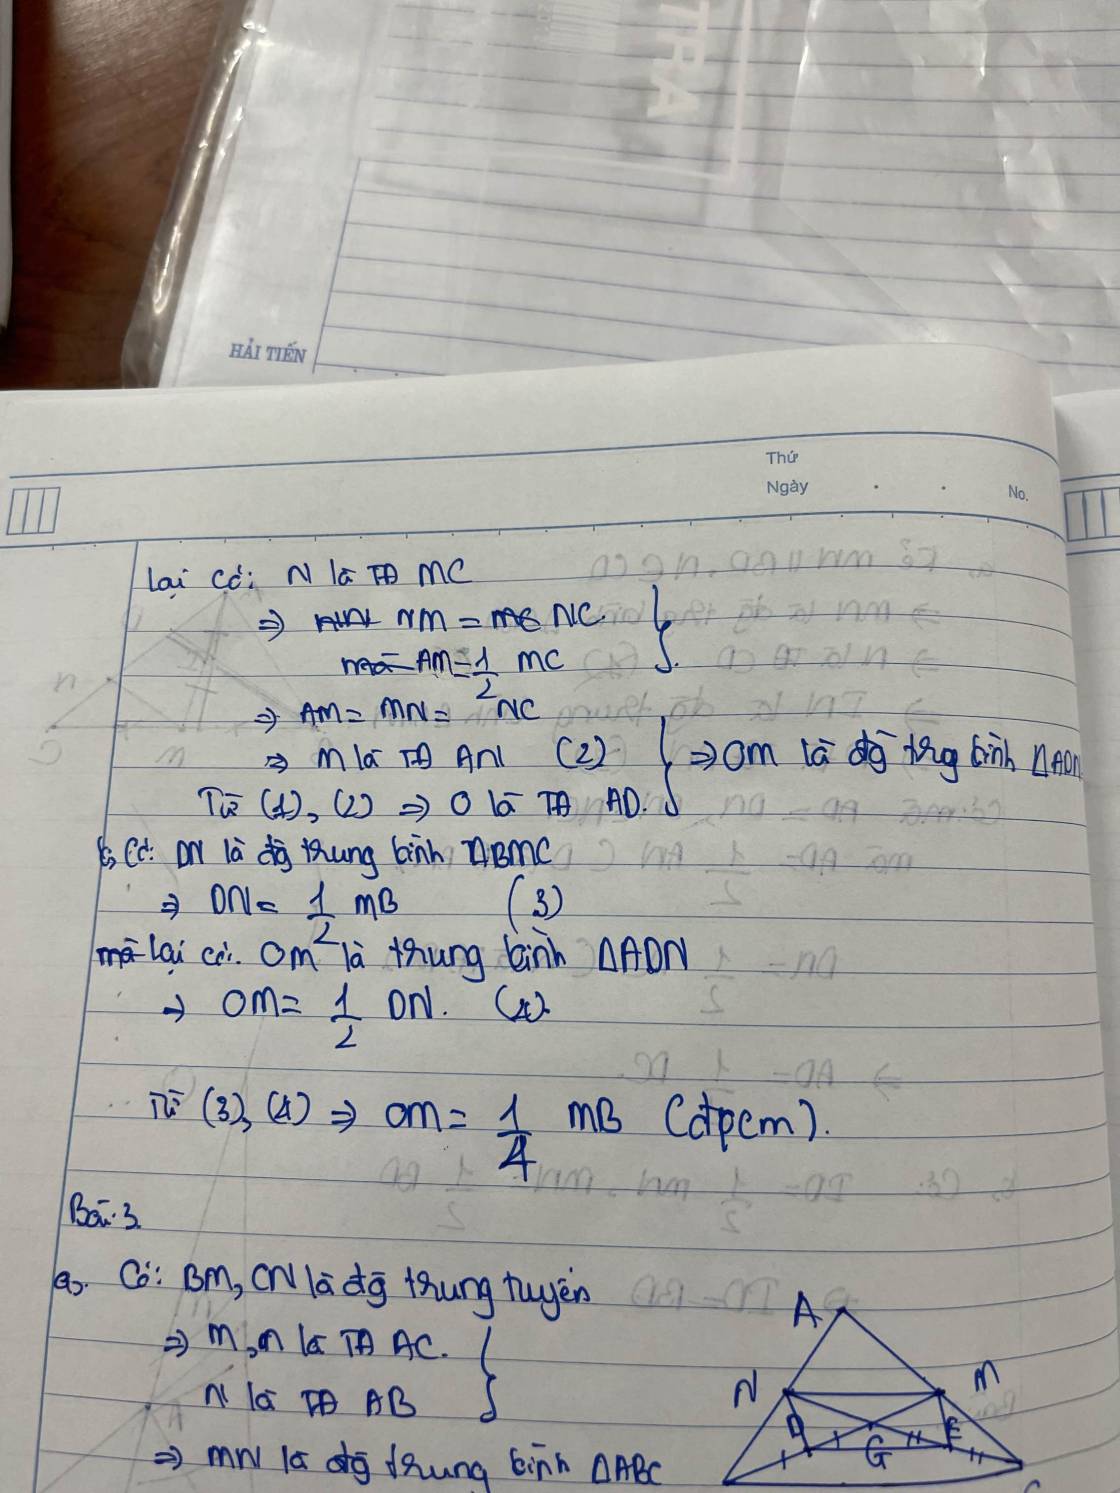 TRA
HẢI TIẾN
Thứ
Ngày . . No.
Lại có: N là TĐ MC
⇒ NM = NC.
mà AM = 1/2 MC
⇒ AM = MN = NC
⇒ M là TĐ AN (2) ⇒ OM là đg trg bình ΔADN
Từ (1), (2) ⇒ O là TĐ AD.
Có: DN là đg trung bình ΔBMC
⇒ DN = 1/2 MB (3)
mà lại có: OM là trung bình ΔADN
⇒ OM = 1/2 DN. (4).
Từ (3), (4) ⇒ OM = 1/4 MB (đpcm).
Bài 3.
a, Có: BM, CN là đg trung tuyến
⇒ M, n là TĐ AC.
N là TĐ AB
⇒ MN là đg trung bình ΔABC
A
N M
D G E